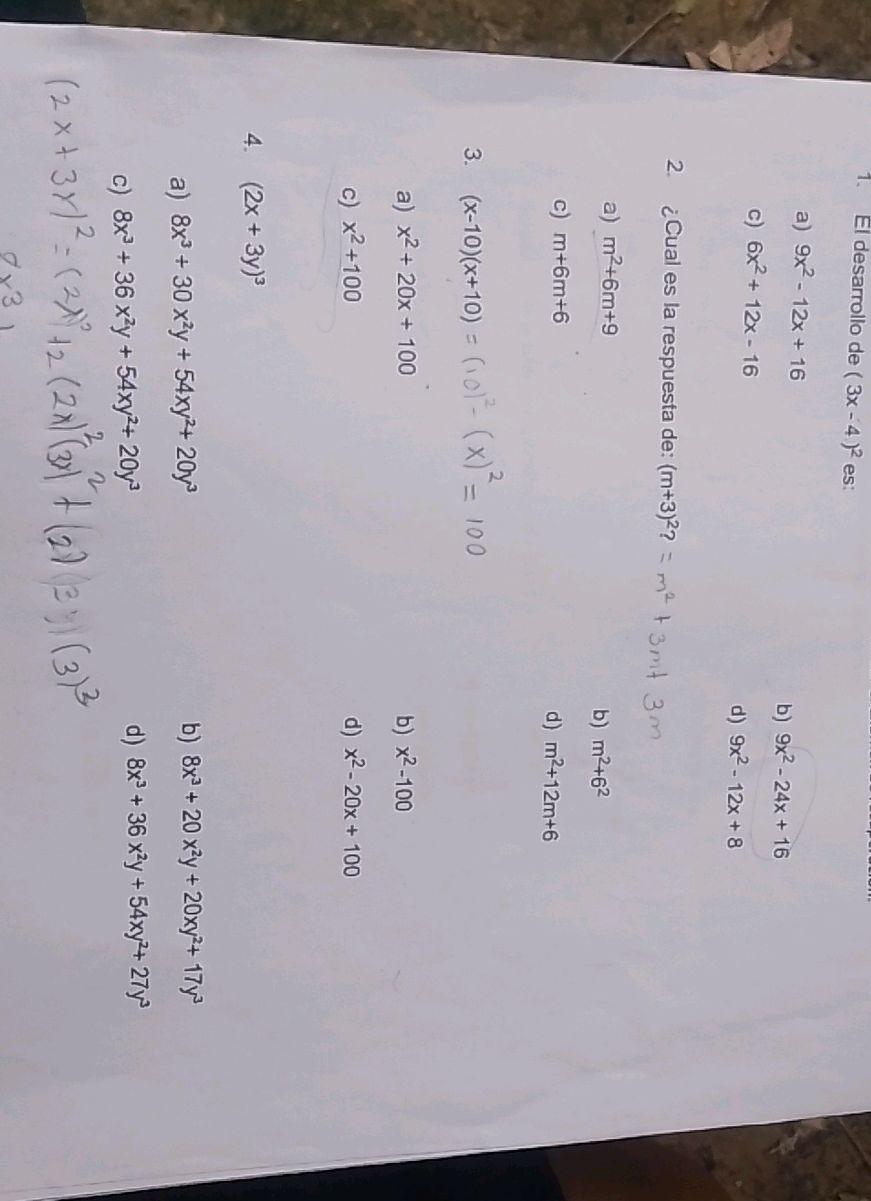 1. El desarrollo de ( 3x - 4 )² es:
a) 9x² - 12x + 16 b) 9x² - 24x + 16
c) 6x² + 12x - 16 d) 9x² - 12x + 8
2. ¿Cual es la respuesta de: (m+3)²? = m² + 3m+ 3m
a) m²+6m+9 b) m²+6²
c) m+6m+6 d) m²+12m+6
3. (x-10)(x+10) = (10)² - (x)² = 100
a) x² + 20x + 100 b) x²-100
c) x²+100 d) x² - 20x + 100
4. (2x + 3y)³
a) 8x³ + 30 x²y + 54xy²+ 20y³ b) 8x³ + 20 x²y + 20xy²+ 17y³
c) 8x³ + 36 x²y + 54xy²+ 20y³ d) 8x³ + 36 x²y + 54xy²+ 27y³
(2x + 3y)² = (2x)² + 2 (2x)² (3y)² + (2) (3y) (3)³